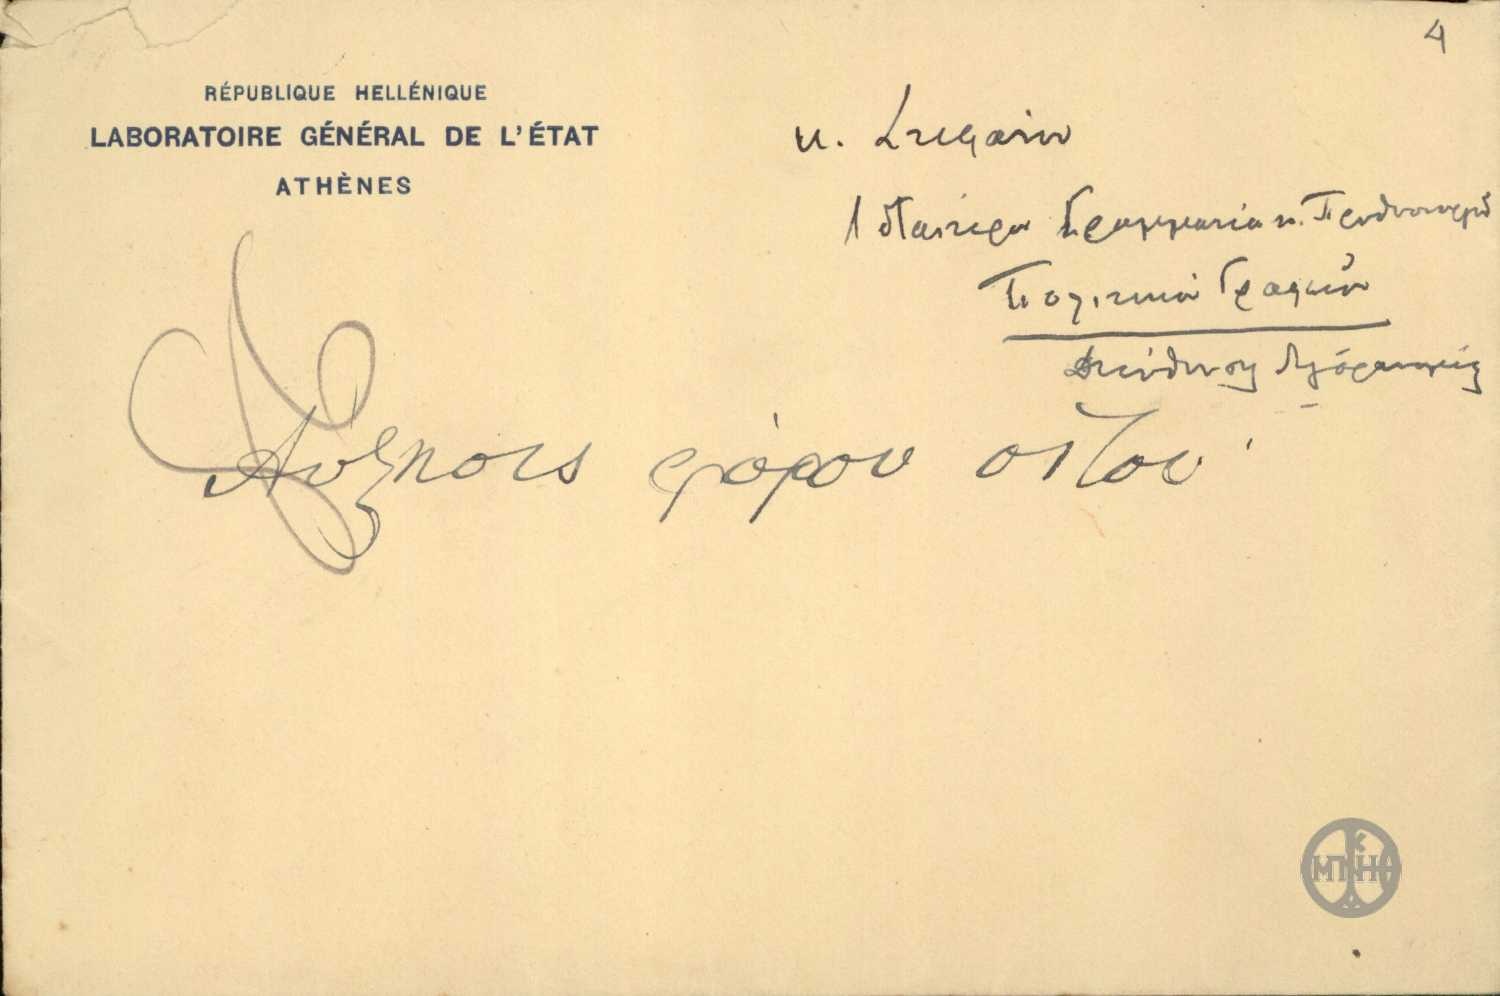 4
RÉPUBLIQUE HELLÉNIQUE
LABORATOIRE GÉNÉRAL DE L'ÉTAT
ATHÈNES
κ. Στεφάνου
Ιδιαίτερα Γραμματεία κ. Πρωθυπουργού
Πολιτικόν Γραφείον
Διεύθυνση
Αύξησις φόρου σίτου
ΜΠΝΗ